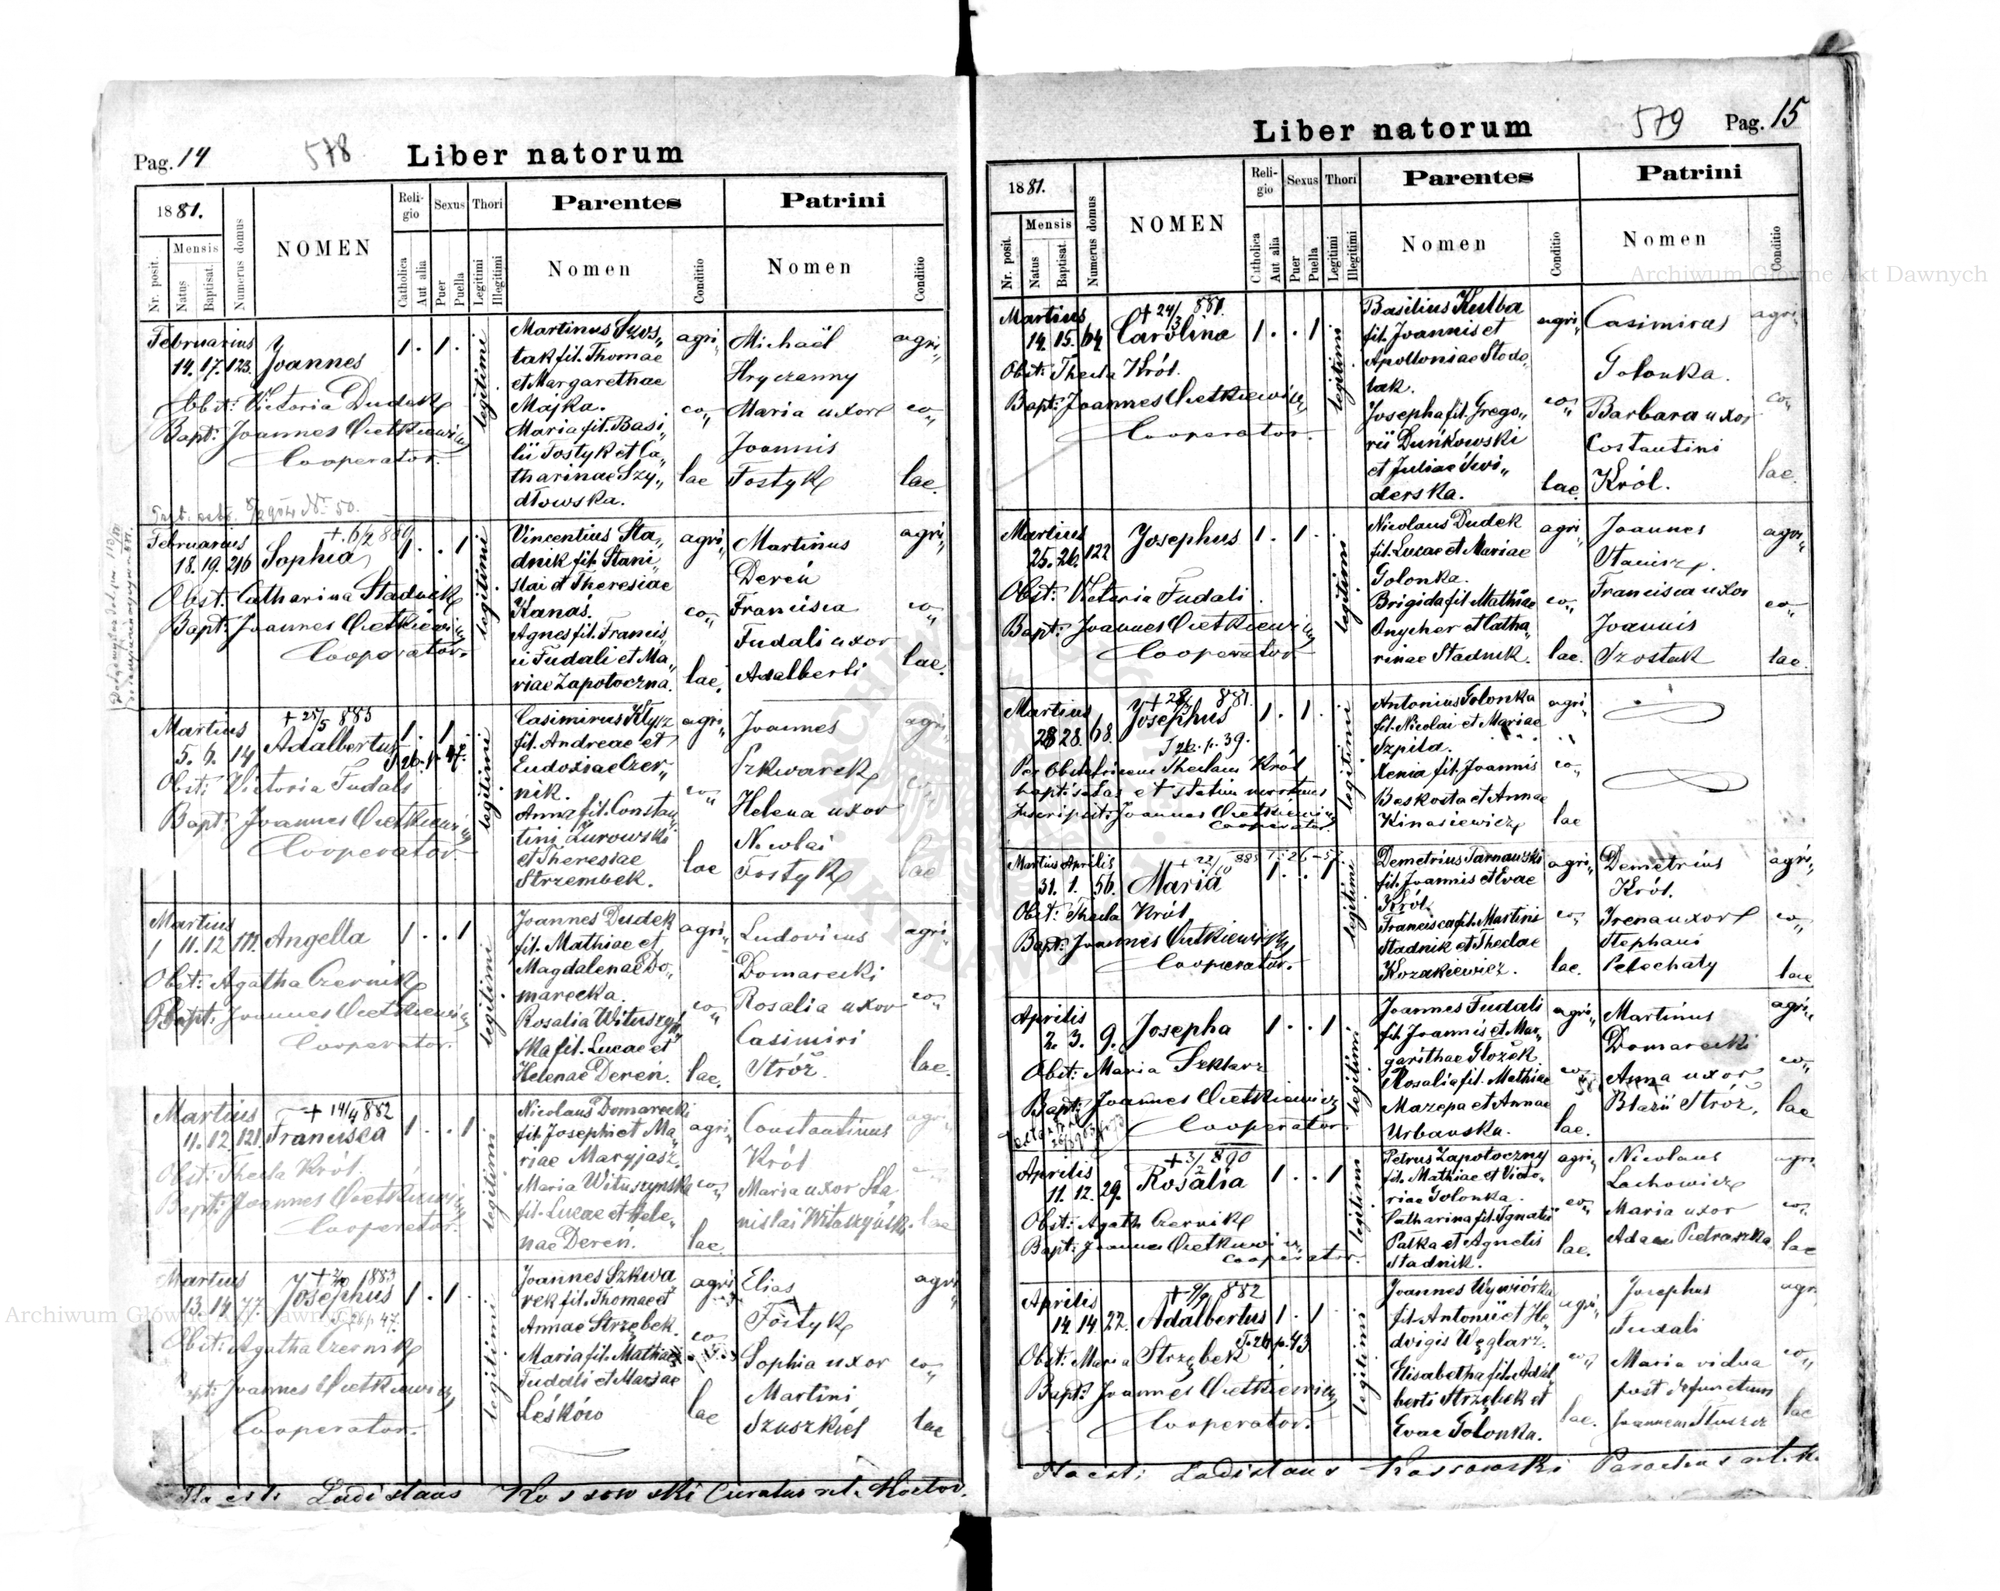 Pag. 14
578
Liber natorum
1881.
Nr. posit.
Mensis
Natus
Baptisat.
Numerus domus
NOMEN
Reli-
gio
Catholica
Aut alia
Sexus
Puer
Puella
Thori
Legitimi
Illegitimi
Parentes
Nomen
Conditio
Patrini
Nomen
Conditio
Februarius
14. 17. 123. Joannes
1. 1.
legitimi
Obst: Victoria Dudek
Bapt: Joannes Cietkiewicz
Cooperator.
Martinus Szos„
tak fil. Thomae
et Margarethae
Majka.
Maria fil. Basi„
lii Fostyk et Ca„
tharinae Szy„
dłowska.
agri„
co„
lae
Michaël
Hryczanny
Maria uxor
Joannis
Fostyk
agri„
co„
lae.
Februarius
18. 19. 216 Sophia
1. . 1
legitimi
Obst. Catharina Stadnik
Bapt: Joannes Cietkiewicz
Cooperator.
Vincentius Sta„
dnik fil. Stani„
slai et Theresiae
Kanas.
Agnes fil. Francis„
ci Fudali et Ma„
riae Zapotoczna.
agri„
co„
lae.
Martinus
Dereń
Francisca
Fudali uxor
Adalberti
agri„
co„
lae.
Martius
+ 25/5 883
5. 6. 14 Adalbertus
1. 1.
legitimi
Obst: Victoria Fudali
Bapt: Joannes Cietkiewicz
Cooperator.
Casimirus Kłysz
fil. Andreae et
Eudoxiae Czer„
nik.
Anna fil. Constan„
tini Żurowski
et Theresiae
Strzembek.
agri„
co„
lae
Joannes
Szkwarek
Helena uxor
Nicolai
Fostyk
agri„
co„
lae
Martius
11. 12 177. Angella
1. . 1
legitimi
Obst: Agatha Czernik
Bapt. Joannes Cietkiewicz
Cooperator.
Joannes Dudek
fil. Mathiae et
Magdalenae Do„
marecka.
Rosalia Wituszyń„
ska fil. Lucae et
Helenae Deren.
agri„
co„
lae.
Ludovicus
Domarecki
Rosalia uxor
Casimiri
Stróż.
agri„
co„
lae.
Martius
+ 14/4 882
11. 12. 121. Francisca
1. . 1
legitimi
Obst: Thecla Król.
Bapt: Joannes Cietkiewicz
Cooperator.
Nicolaus Domarecki
fil. Josephi et Ma„
riae Maryjasz.
Maria Wituszynska
fil. Lucae et Hele„
nae Deren.
agri„
co„
lae
Constantinus
Król
Maria uxor Sta
nislai
agri„
lae
Martius
1883
13. 14 77. Josephus
1. 1.
legitimi
Obst: Agatha Czernik
Bapt: Joannes Cietkiewicz
Cooperator.
Joannes Szkwa„
rek fil. Thomae et
Annae Strzębek.
Maria fil. Mathiae
Fudali et Mariae
Leśków
agri„
co„
lae
Elias
Fostyk
Sophia uxor
Martini
Szuszkiel
agri„
co„
lae
Ladislaus Kossowski Curatus
Liber natorum
579
Pag. 15
1881.
Nr. posit.
Mensis
Natus
Baptisat.
Numerus domus
NOMEN
Reli-
gio
Catholica
Aut alia
Sexus
Puer
Puella
Thori
Legitimi
Illegitimi
Parentes
Nomen
Conditio
Patrini
Nomen
Conditio
Martius
+ 24/3 881.
14. 15. 64. Carolina
1. . 1
legitimi
Obst: Thecla Król.
Bapt: Joannes Cietkiewicz
Cooperator.
Basilius Kulba
fil. Joannis et
Apolloniae Stodo„
lak.
Josepha fil. Grego„
rii Duńkowski
et Juliae Świ„
derska.
agri„
co„
lae.
Casimirus
Golonka.
Barbara uxor
Costantini
Król.
agri„
co„
lae.
Martius
25. 26. 122 Josephus
1. 1.
legitimi
Obst: Victoria Fudali.
Bapt: Joannes Cietkiewicz
Cooperator.
Nicolaus Dudek
fil. Lucae et Mariae
Golonka.
Brigida fil. Mathiae
Onycher et Catha„
rinae Stadnik.
agri„
co„
lae.
Joannes
Francisca uxor
Joannis
Szostak
agri„
co„
lae.
Martius
+ 28/3 881.
28 28. 68. Josephus
1. 1.
legitimi
Per Obstetricem Theclam Król
baptisatus et statim mortuus
Inscripsit: Joannes Cietkiewicz
Cooperator.
Antonius Golonka
fil. Nicolai et Mariae
Szpila.
Xenia fil. Joannis
Beskosta et Annae
Kinasiewicz
agri„
co„
lae
Martius Aprilis
31. 1. 56. Maria
1. . 1
legitimi
Obst: Thecla Król
Bapt: Joannes Cietkiewicz
Cooperator.
Demetrius Tarnawski
fil. Joannis et Evae
Król.
Francisca fil. Martini
Stadnik et Theclae
Kozakiewicz.
agri„
co„
lae.
Demetrius
Król.
Irena uxor
Stephani
Petechaty
agri„
co„
lae
Aprilis
2. 3. 9. Josepha
1. . 1
legitimi
Obst: Maria Szklarz
Bapt: Joannes Cietkiewicz
Cooperator
Joannes Fudali
fil. Joannis et Mar„
garithae Tłożek.
Rosalia fil. Mathiae
Mazepa et Annae
Urbanska.
agri„
co„
lae.
Martinus
Domarecki
Anna uxor
Blazii Stróż.
agri„
co„
lae
Aprilis
+ 3/2 890
11. 12. 29. Rosalia
1. . 1
legitimi
Obst: Agath Czernik
Bapt: Joannes Cietkiewicz
Cooperator.
Petrus Zapotoczny
fil. Mathiae et Victo„
riae Golonka.
Catharina fil. Ignatii
Palka et Agnetis
Stadnik.
agri„
co„
lae.
Nicolaus
Lachowicz
Maria uxor
Adami Pietraszka
agri
co„
lae
Aprilis
+ 9/9 882
14 14 22. Adalbertus
1. 1
T. 26 p. 43
legitimi
Obst: Maria Strzębek
Bapt: Joannes Cietkiewicz
Cooperator.
Joannes Wywiórka
fil. Antonii et He„
dvigis Węglarz.
Elisabetha fil. Adal„
berti Strzębek et
Evae Golonka.
agri„
co„
lae.
Josephus
Fudali
Maria vidua
post defunctum
Joannem
agri„
co„
lae
Ita est: Ladislaus Kossowski Parochus
Archiwum Główne Akt Dawnych
Archiwum Główne Akt Dawnych